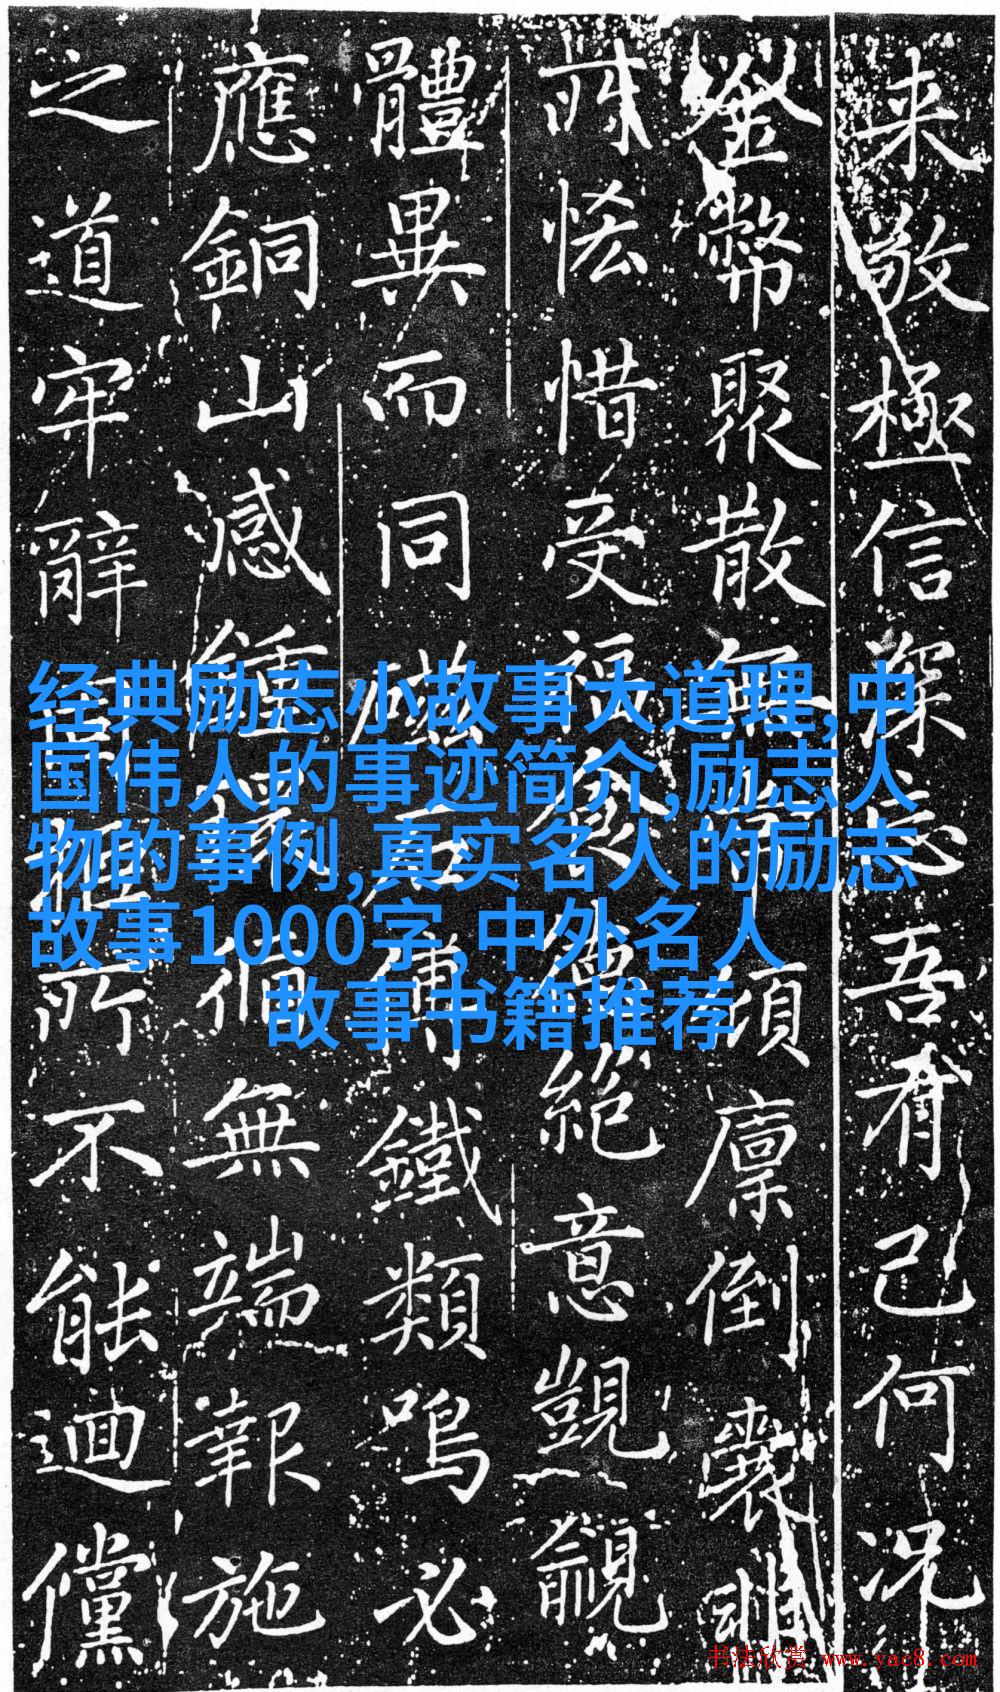 经典励志小故事大道理,中
国伟人的事迹简介,励志人
物的事例,真实名人的励志
故事1000字,中外名人
故事书籍推荐
来敬極信深忘吾有己何况
金幣聚散無須廪倒裳
所恡惜受絕意覬覦
體異而同磁鐵類鳴必
應銅山感鍾循無端報施
之道牢辭所不能迴儻
书法欣赏 www.yac8.com